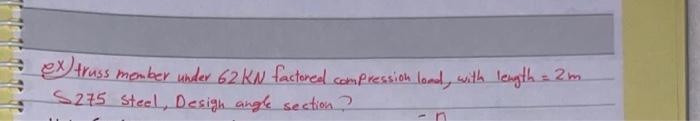 ex) truss member under 62 KN factored compression load, with length = 2m
S275 steel, Design angle section?